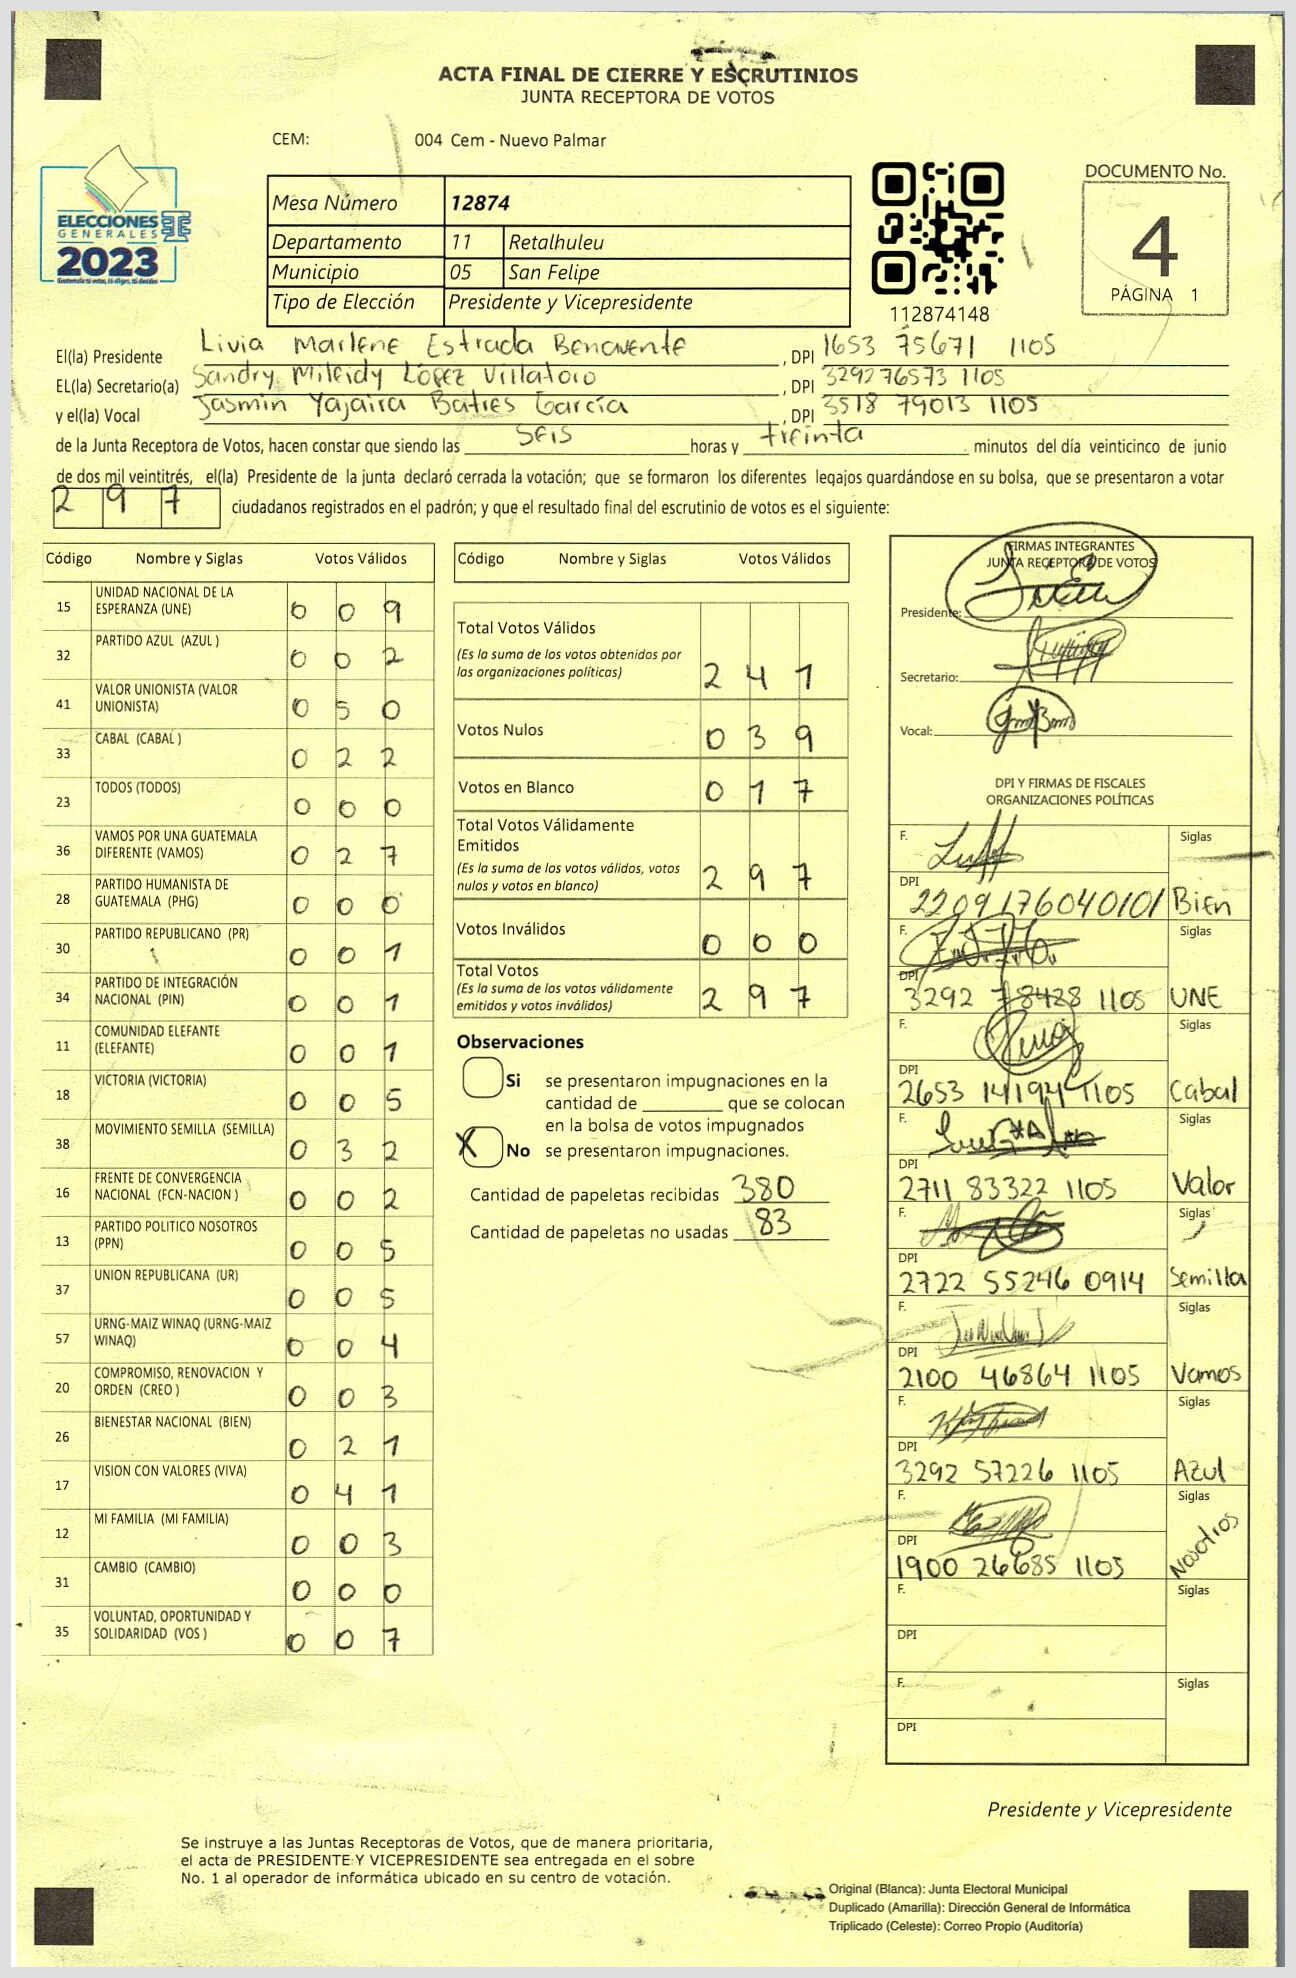 ACTA FINAL DE CIERRE Y ESCRUTINIOS
JUNTA RECEPTORA DE VOTOS
CEM: 004 Cem - Nuevo Palmar
ELECCIONES
GENERALES
2023
Mesa Número 12874
Departamento 11 Retalhuleu
Municipio 05 San Felipe
Tipo de Elección Presidente y Vicepresidente
112874148
DOCUMENTO No.
4
PÁGINA 1
El(la) Presidente Livia Marlene Estrada Benavente, DPI 1653 75671 1105
EL(la) Secretario(a) Sandry Mileidy López Villatoro, DPI 329276573 1105
y el(la) Vocal Jasmin Yajaira Batres García, DPI 3518 79013 1105
de la Junta Receptora de Votos, hacen constar que siendo las seis horas y treinta minutos del día veinticinco de junio
de dos mil veintitrés, el(la) Presidente de la junta declaró cerrada la votación; que se formaron los diferentes legajos guardándose en su bolsa, que se presentaron a votar
2 9 7 ciudadanos registrados en el padrón; y que el resultado final del escrutinio de votos es el siguiente:
Código Nombre y Siglas Votos Válidos
15 UNIDAD NACIONAL DE LA ESPERANZA (UNE) 0 0 9
32 PARTIDO AZUL (AZUL ) 0 0 2
41 VALOR UNIONISTA (VALOR UNIONISTA) 0 5 0
33 CABAL (CABAL ) 0 2 2
23 TODOS (TODOS) 0 0 0
36 VAMOS POR UNA GUATEMALA DIFERENTE (VAMOS) 0 2 7
28 PARTIDO HUMANISTA DE GUATEMALA (PHG) 0 0 0
30 PARTIDO REPUBLICANO (PR) 0 0 1
34 PARTIDO DE INTEGRACIÓN NACIONAL (PIN) 0 0 1
11 COMUNIDAD ELEFANTE (ELEFANTE) 0 0 1
18 VICTORIA (VICTORIA) 0 0 5
38 MOVIMIENTO SEMILLA (SEMILLA) 0 3 2
16 FRENTE DE CONVERGENCIA NACIONAL (FCN-NACION ) 0 0 2
13 PARTIDO POLITICO NOSOTROS (PPN) 0 0 5
37 UNION REPUBLICANA (UR) 0 0 5
57 URNG-MAIZ WINAQ (URNG-MAIZ WINAQ) 0 0 4
20 COMPROMISO, RENOVACION Y ORDEN (CREO ) 0 0 3
26 BIENESTAR NACIONAL (BIEN) 0 2 1
17 VISION CON VALORES (VIVA) 0 4 1
12 MI FAMILIA (MI FAMILIA) 0 0 3
31 CAMBIO (CAMBIO) 0 0 0
35 VOLUNTAD, OPORTUNIDAD Y SOLIDARIDAD (VOS ) 0 0 7
Código Nombre y Siglas Votos Válidos
Total Votos Válidos
(Es la suma de los votos obtenidos por las organizaciones políticas) 2 4 1
Votos Nulos 0 3 9
Votos en Blanco 0 1 7
Total Votos Válidamente Emitidos
(Es la suma de los votos válidos, votos nulos y votos en blanco) 2 9 7
Votos Inválidos 0 0 0
Total Votos
(Es la suma de los votos válidamente emitidos y votos inválidos) 2 9 7
Observaciones
Si se presentaron impugnaciones en la
cantidad de ________ que se colocan
en la bolsa de votos impugnados
X No se presentaron impugnaciones.
Cantidad de papeletas recibidas 380
Cantidad de papeletas no usadas 83
FIRMAS INTEGRANTES
JUNTA RECEPTORA DE VOTOS
Presidente:
Secretario:
Vocal:
DPI Y FIRMAS DE FISCALES
ORGANIZACIONES POLÍTICAS
F. Siglas
DPI 2209176040101 Bien
F. Siglas
DPI 3292 78428 1105 UNE
F. Siglas
DPI 2653 14194 1105 Cabal
F. Siglas
DPI 2711 83322 1105 Valor
F. Siglas
DPI 2722 55246 0914 Semilla
F. Siglas
DPI 2100 46864 1105 Vamos
F. Siglas
DPI 3292 57226 1105 Azul
F. Siglas
DPI 1900 26685 1105 Nosotros
F. Siglas
DPI
F. Siglas
DPI
Presidente y Vicepresidente
Se instruye a las Juntas Receptoras de Votos, que de manera prioritaria,
el acta de PRESIDENTE Y VICEPRESIDENTE sea entregada en el sobre
No. 1 al operador de informática ubicado en su centro de votación.
Original (Blanca): Junta Electoral Municipal
Duplicado (Amarilla): Dirección General de Informática
Triplicado (Celeste): Correo Propio (Auditoría)